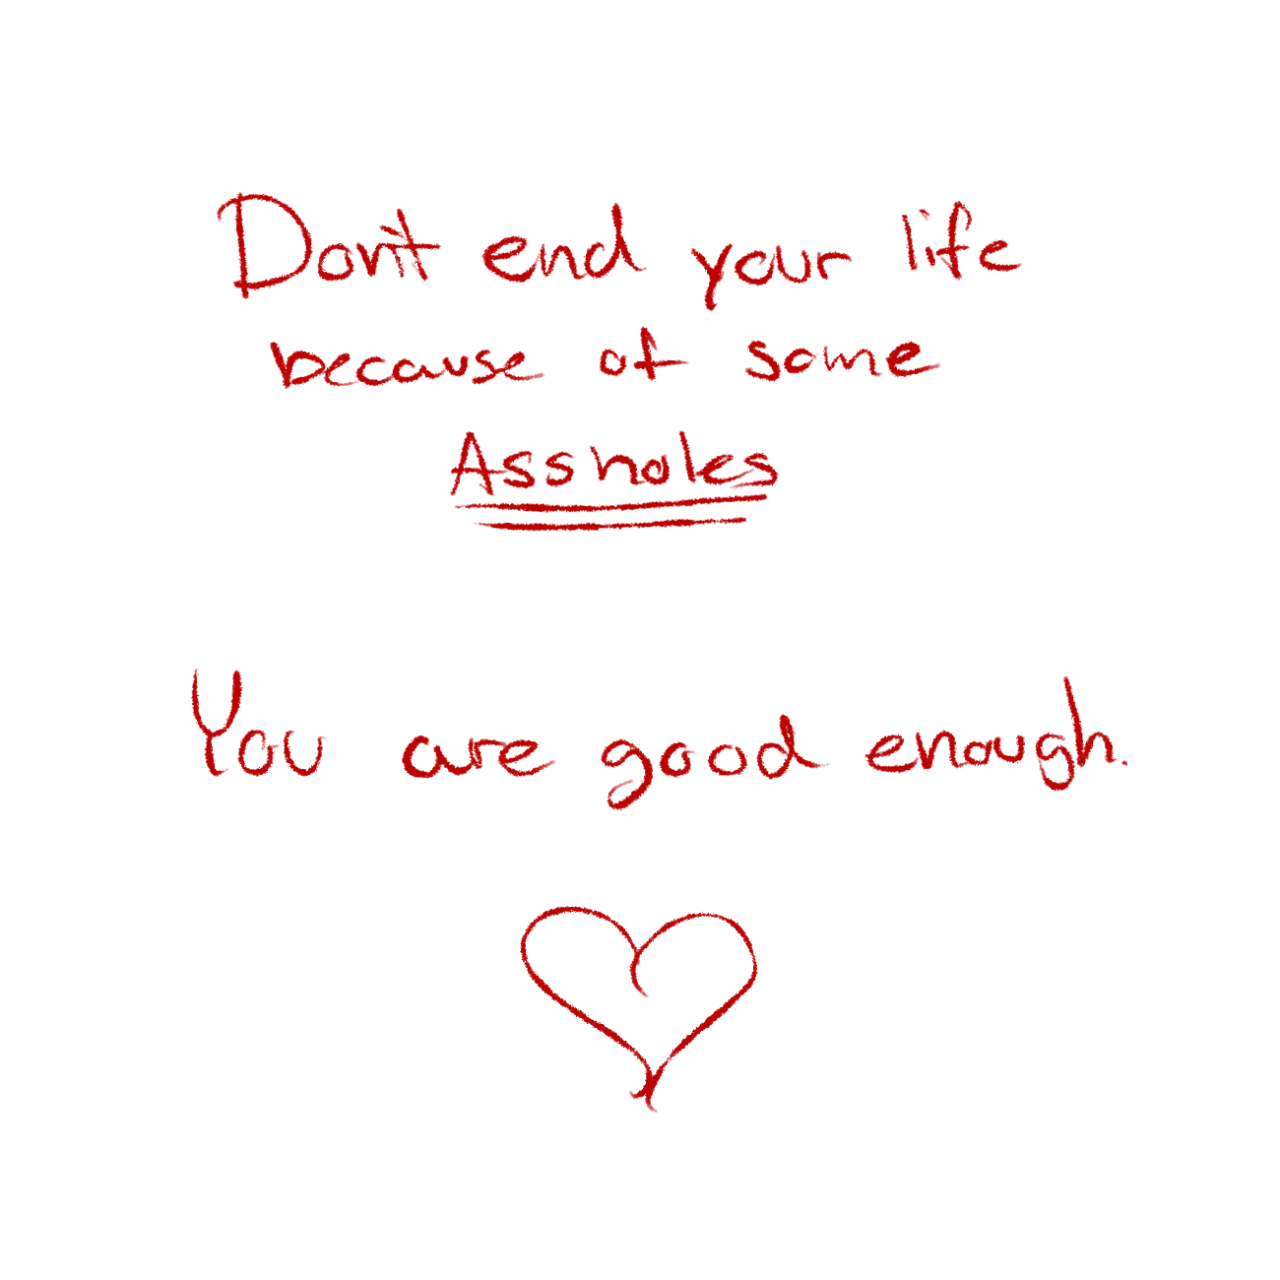 Don't end your life
because of some
Assholes
You are good enough.